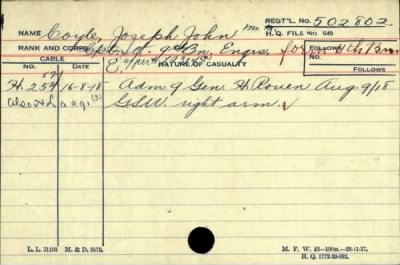 NAME Coyle, Joseph John M.M. REGT'L. NO. 502802
H. Q. FILE NO 649
RANK AND CORPS Spr. 9th Bn. Engrs. form 4th Bn. FOLLOWS
CABLE NATURE OF CASUALTY
NO. DATE FOLLOWS
H. 254 16-8-18 Adm. 9 Gen. H. Rouen Aug. 9/18
G.S.W. right arm.
L. L. 31493 M. & D. 8476. M. F. W. 42-100m.-28-11-17.
H. Q. 1772-39-893.